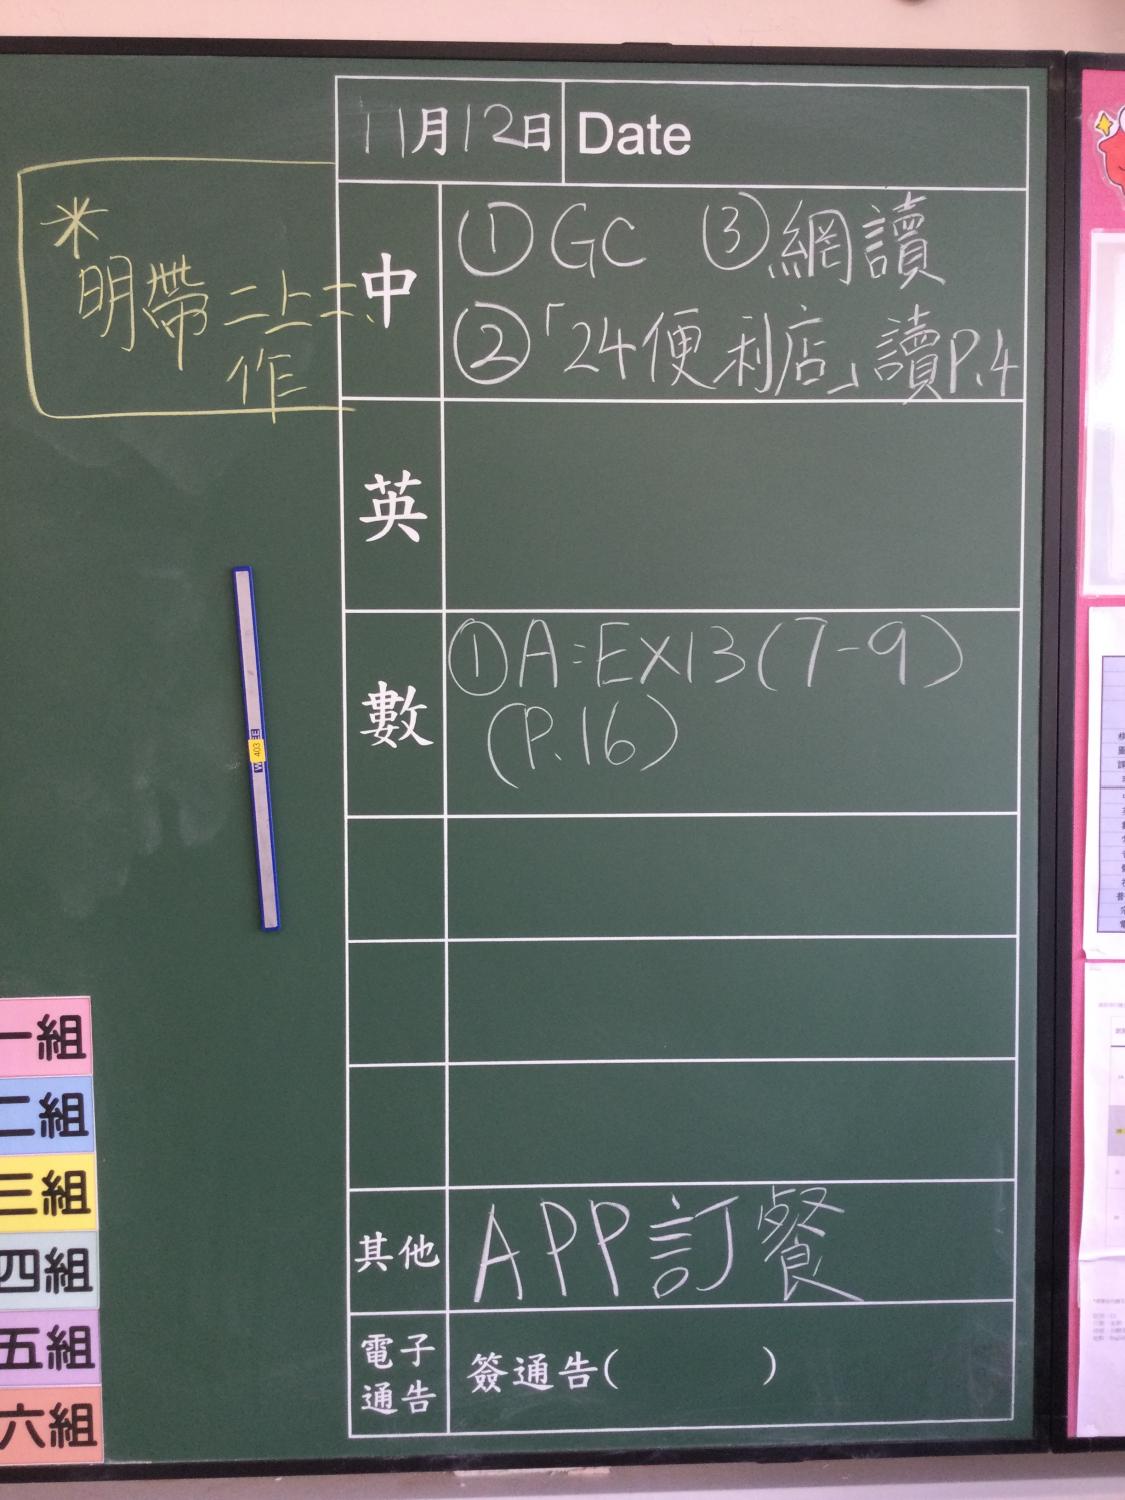 11月12日 Date
*
明帶二上二、
作
中
① GC ③ 網讀
②「24便利店」讀P.4
英
數
① A:EX13(7-9)
(P.16)
其他
APP訂餐
電子
通告
簽通告( )
403
一組
二組
三組
四組
五組
六組